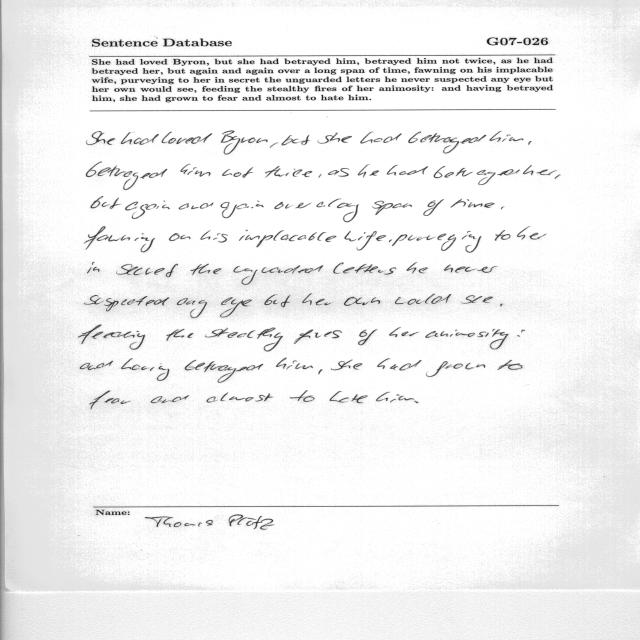 Sentence Database G07-026
She had loved Byron, but she had betrayed him, betrayed him not twice, as he had
betrayed her, but again and again over a long span of time, fawning on his implacable
wife, purveying to her in secret the unguarded letters he never suspected any eye but
her own would see, feeding the stealthy fires of her animosity: and having betrayed
him, she had grown to fear and almost to hate him.
She had loved Byron, but she had betrayed him,
betrayed him not twice, as he had betrayed her,
but again and again over a long span of time,
fawning on his implacable wife, purveying to her
in secret the unguarded letters he never
suspected any eye but her own would see,
feeding the stealthy fires of her animosity:
and having betrayed him, she had grown to
fear and almost to hate him.
Name: Thomas Plötz